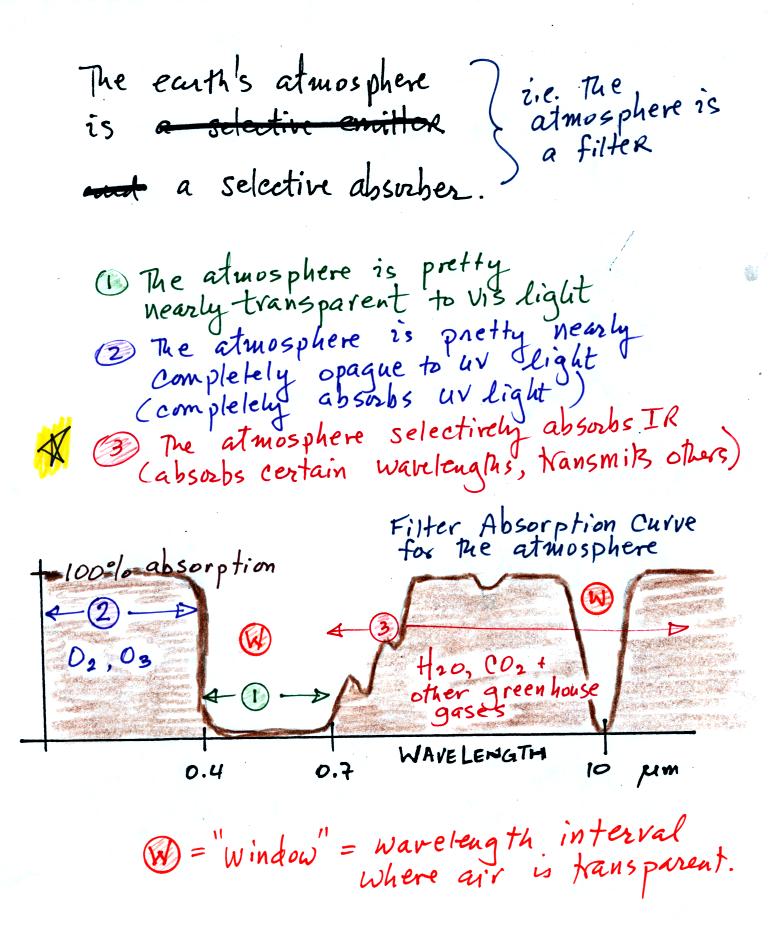 The earth's atmosphere
is a selective emitter
and a selective absorber.
i.e. the
atmosphere is
a filter
① The atmosphere is pretty
nearly transparent to vis light
② The atmosphere is pretty nearly
completely opaque to uv light
(completely absorbs uv light)
③ The atmosphere selectively absorbs IR
(absorbs certain wavelengths, transmits others)
Filter Absorption Curve
for the atmosphere
100% absorption
2
O2, O3
W
1
3
W
H2O, CO2 +
other greenhouse
gases
WAVELENGTH
0.4 0.7 10 μm
W = "window" = wavelength interval
where air is transparent.